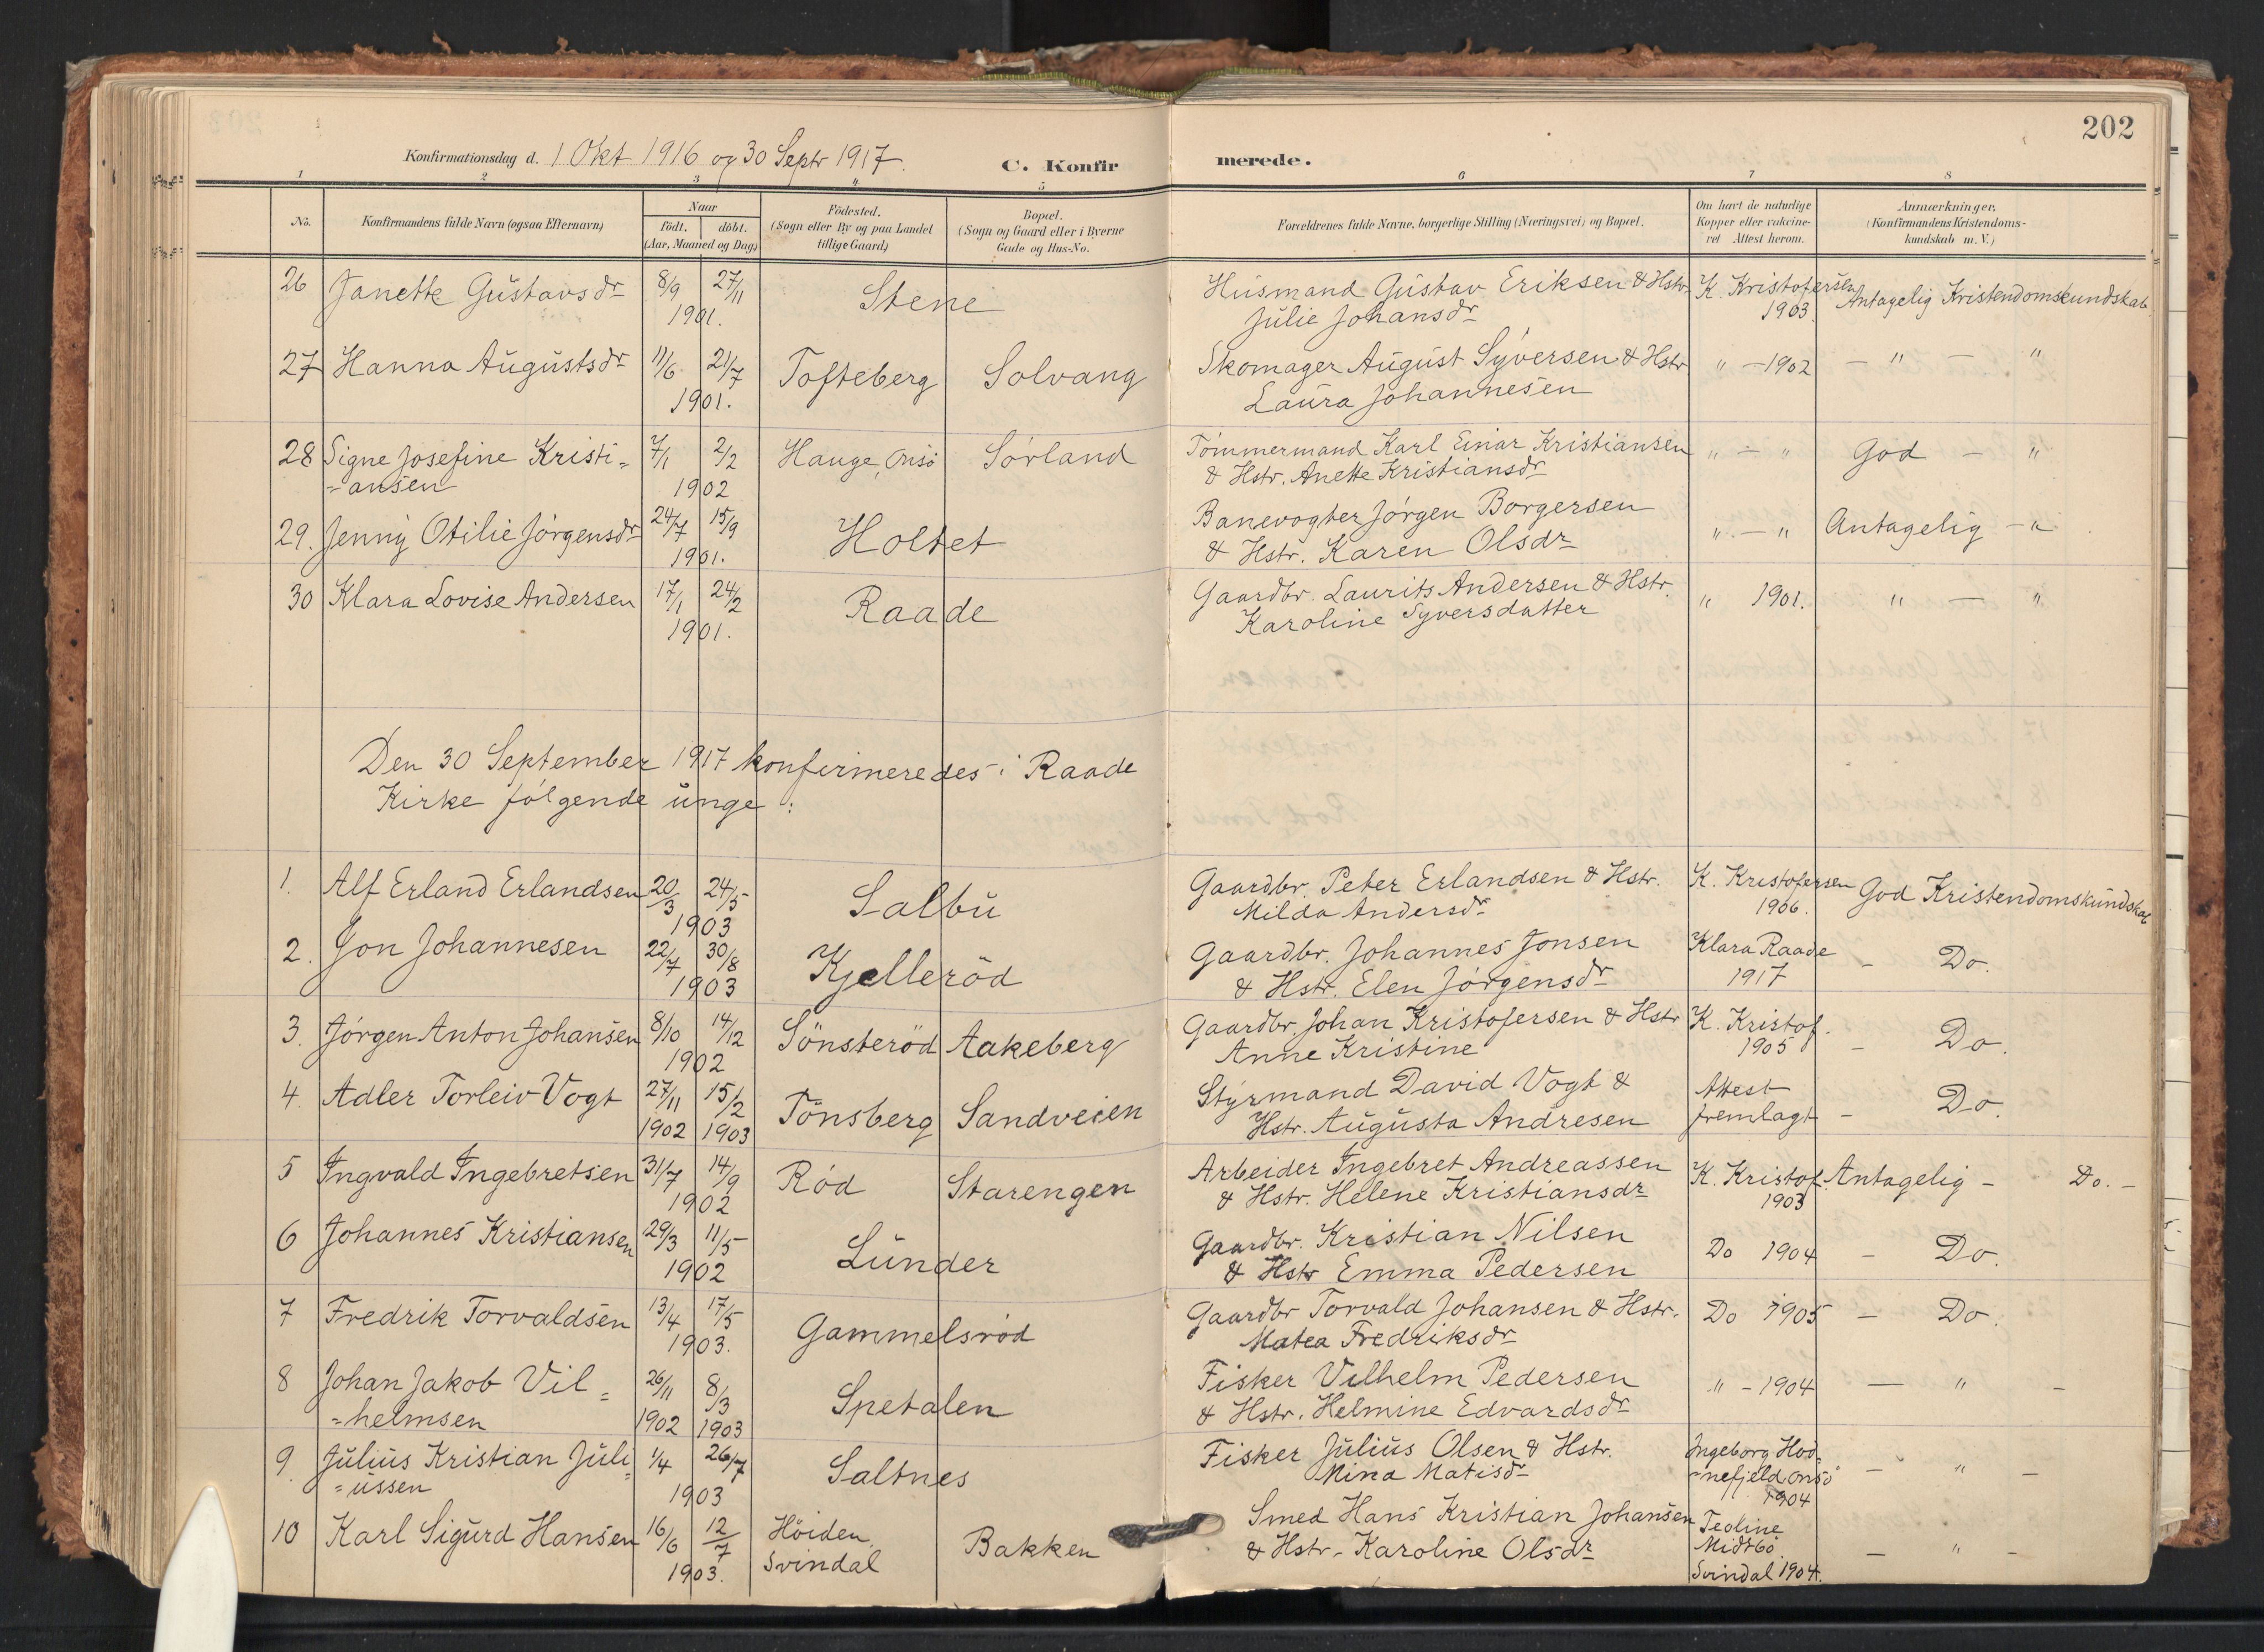 202
Konfirmationsdag d. 1 Okt 1916 og 30 Septr 1917. C. Konfirmerede.
1 2 3 4 5 6 7 8
No. Konfirmandens fulde Navn (ogsaa Efternavn) Naar födt. döbt. (Aar, Maaned og Dag) Födested. (Sogn eller By og paa Landet tillige Gaard) Bopæl. (Sogn og Gaard eller i Byerne Gade og Hus-No. Forældrenes fulde Navne, borgerlige Stilling (Næringsvei) og Bopæl. Om havt de naturlige Kopper eller vakcineret Attest herom. Anmærkninger. (Konfirmandens Kristendomskundskab m. V.)
26 Janette Gustavsdr 8/9 27/11 Stene Husmand Gustav Eriksen & Hstr. K. Kristofersen Antagelig Kristendomskundskab
1901. Julie Johansdr 1903.
27 Hanna Augustsdr 11/6 21/7 Tofteberg Solvang Skomager August Syversen & Hstr " — 1902 — " — "
1901. Laura Johannesen
28 Signe Josefine Kristi= 7/1 2/2 Hauge, Onsö Sørland Tömmermand Karl Einar Kristiansen " — " God — "
=ansen 1902 & Hstr. Anette Kristiansdr
29. Jenny Otilie Jörgensdr 24/7 15/9 Holtet Banevogter Jörgen Borgersen " — " Antagelig — "
1901. & Hstr. Karen Olsdr
30 Klara Lovise Andersen 17/1 24/2 Raade Gaardbr. Laurits Andersen & Hstr. " 1901. " — "
1901. Karoline Syversdatter
Den 30 September 1917 konfirmeredes i Raade
Kirke følgende unge:
1. Alf Erland Erlandsen 20/3 24/5 Salbu Gaardbr. Peter Erlandsen & Hstr. K. Kristofersen God Kristendomskundskab
1903 Milda Andersdr 1906.
2. Jon Johannesen 22/7 30/8 Kjelleröd Gaardbr. Johannes Jonsen Klara Raade — Do.
1903 & Hstr. Elen Jörgensdr 1917
3. Jörgen Anton Johansen 8/10 14/12 Sönsteröd Aakeberg Gaardbr. Johan Kristofersen & Hstr K. Kristof. — Do.
1902 Anne Kristine 1905
4. Adler Torleiv Vogt 27/11 15/2 Tönsberg Sandveien Styrmand David Vogt & Attest — Do.
1902 1903 Hstr. Augusta Andresen fremlagt
5 Ingvald Ingebretsen 31/7 14/9 Röd Starengen Arbeider Ingebret Andreassen K. Kristof. Antagelig — Do. —
1902 & Hstr. Helene Kristiansdr 1903
6 Johannes Kristiansen 29/3 11/5 Lunder Gaardbr. Kristian Nilsen Do 1904 — Do.
1902 & Hstr Emma Pedersen
7 Fredrik Torvaldsen 13/4 17/5 Gammelsröd Gaardbr Torvald Johansen & Hstr. Do 1905 — Do.
1903. Matea Fredriksdr
8 Johan Jakob Vil= 26/11 8/3 Spetalen Fisker Vilhelm Pedersen " - 1904 — " —
=helmsen 1902 1903 & Hstr. Helmine Edvardsdr
9. Julius Kristian Juli= 1/4 26/7 Saltnes Fisker Julius Olsen & Hstr. Ingeborg Hod=
=ussen 1903 Mina Matisdr =nefjeld Onsö — " —
1904
10 Karl Sigurd Hansen 16/6 12/7 Höiden Bakken Smed Hans Kristian Johansen Teoline
1903. Svindal & Hstr. Karoline Olsdr Midtbö — " —
Svindal 1904.